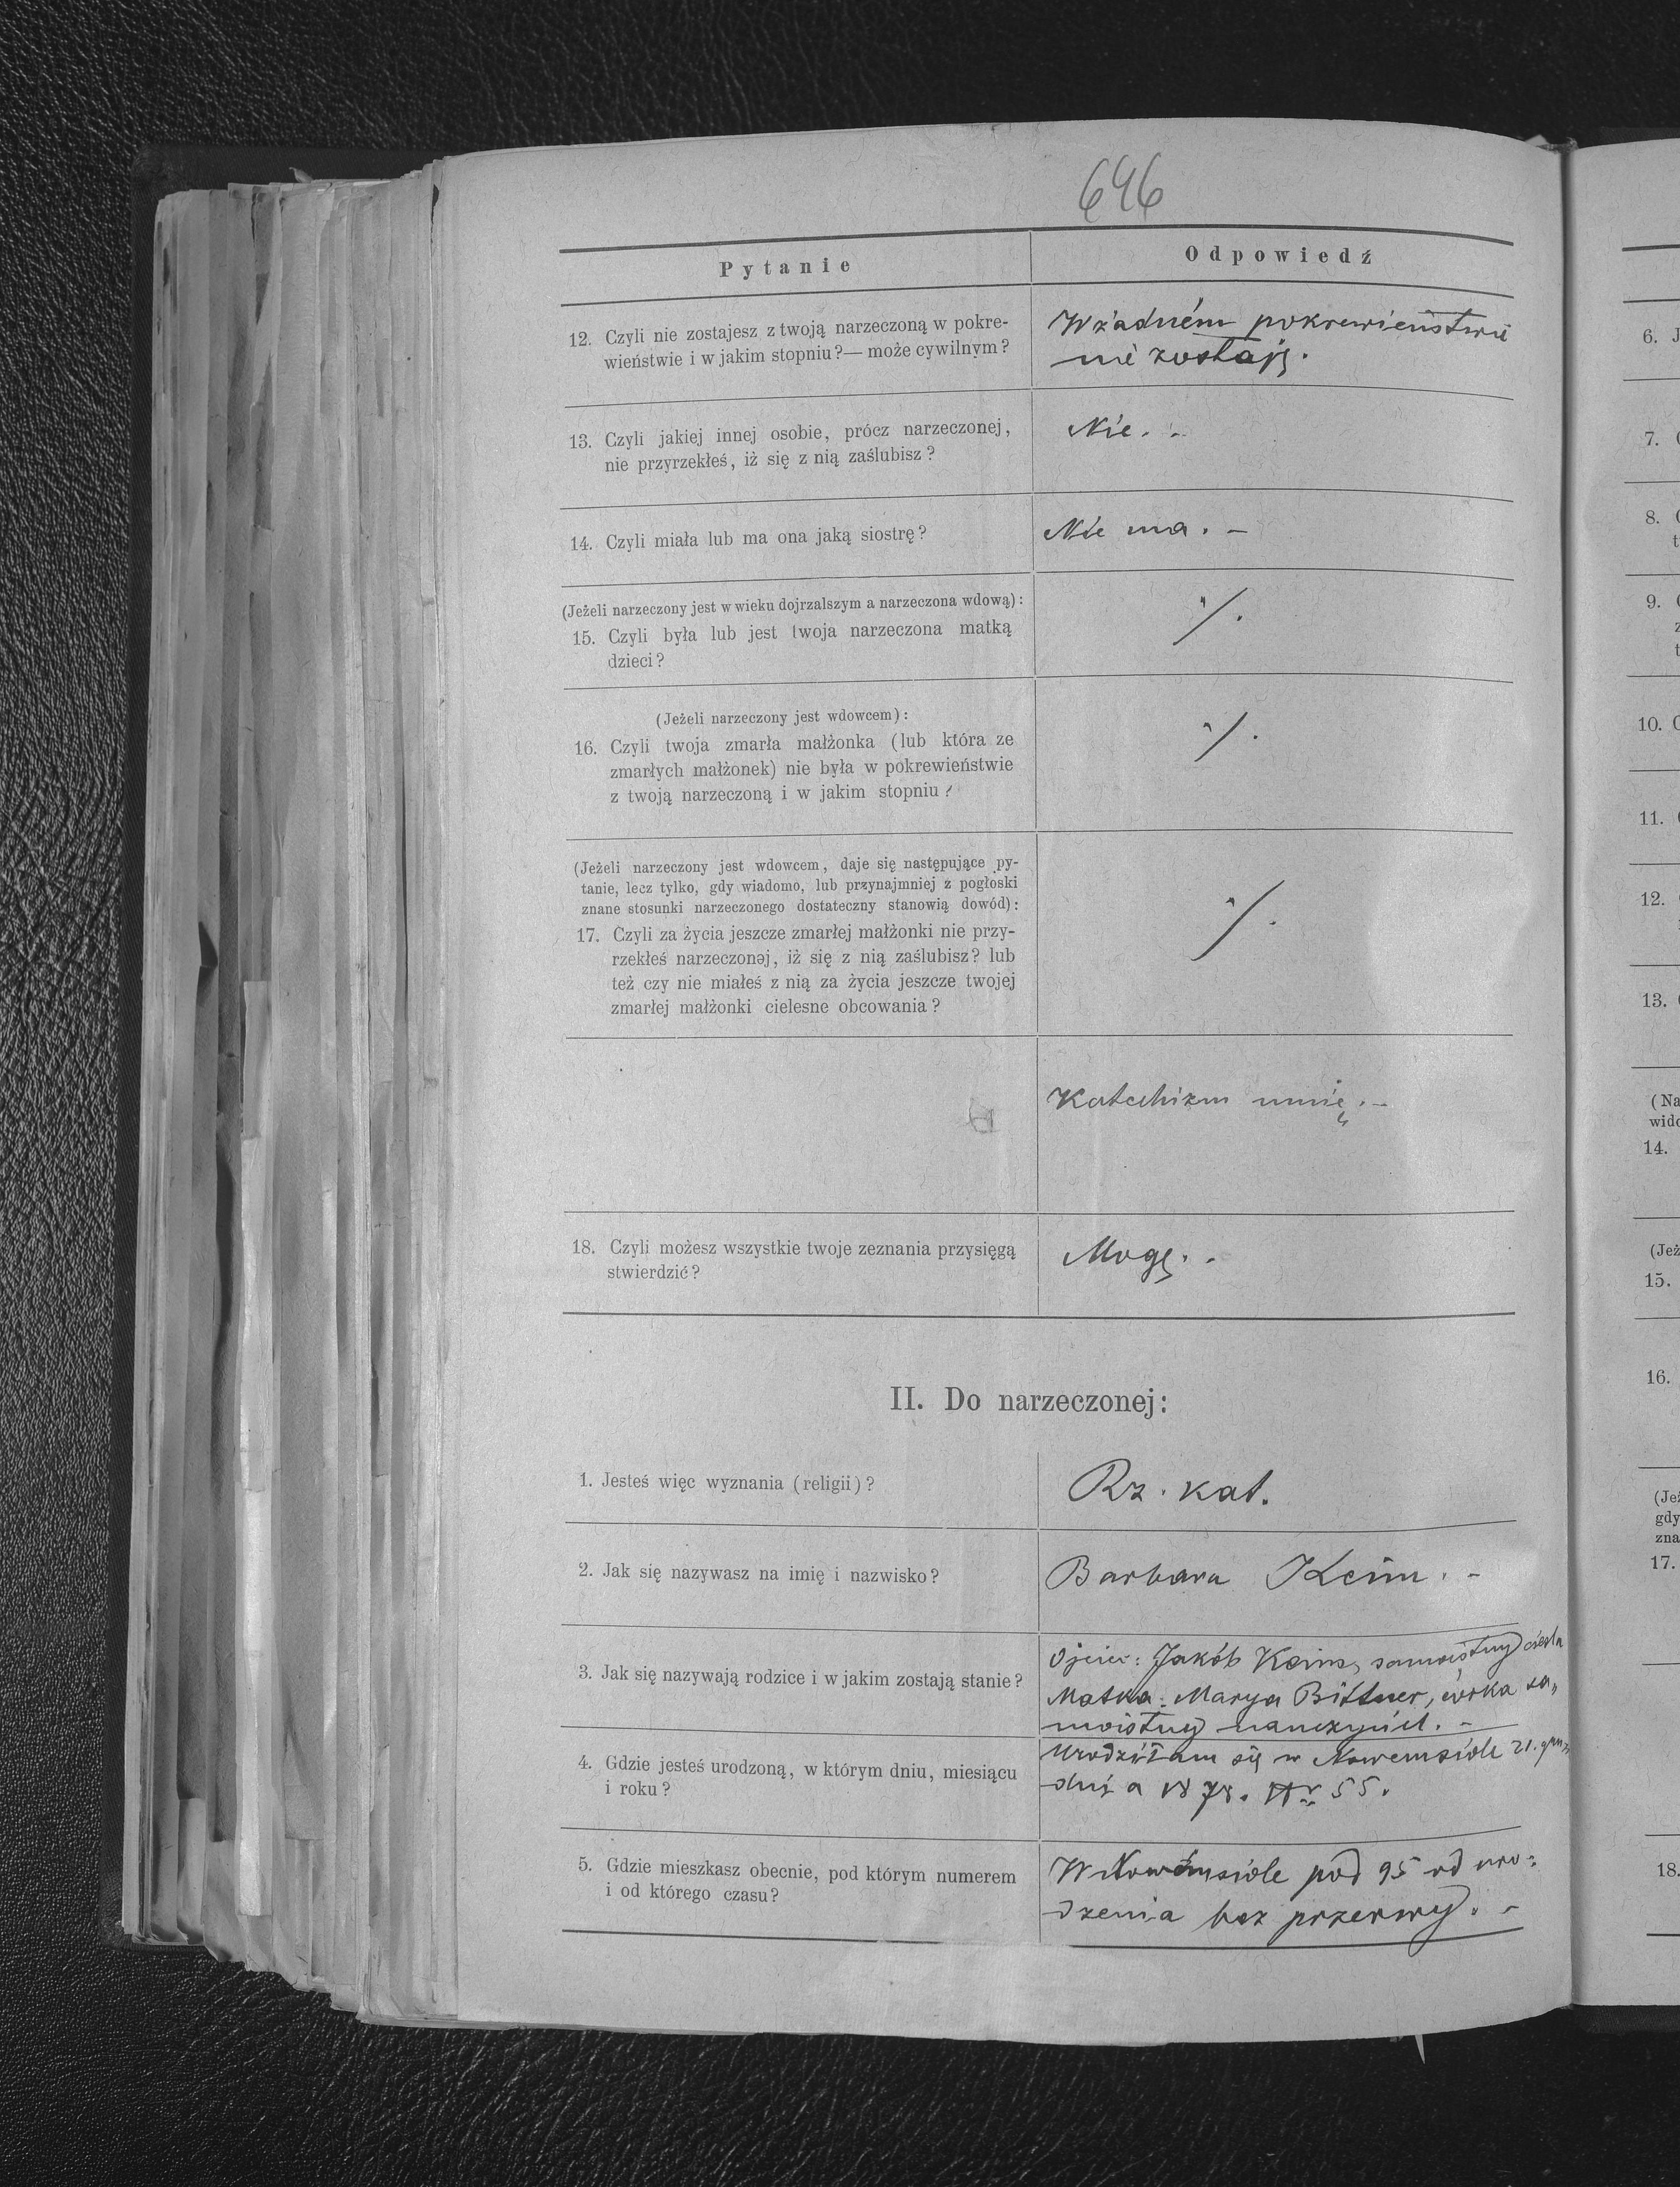 646
Pytanie
Odpowiedź
12. Czyli nie zostajesz z twoją narzeczoną w pokre-
wieństwie i w jakim stopniu?— może cywilnym?
W żadném pokrewieństwie
nie zostaję.
13. Czyli jakiej innej osobie, prócz narzeczonej,
nie przyrzekłeś, iż się z nią zaślubisz?
Nie. -
14. Czyli miała lub ma ona jaką siostrę?
Nie ma. -
(Jeżeli narzeczony jest w wieku dojrzalszym a narzeczona wdową):
15. Czyli była lub jest twoja narzeczona matką
dzieci?
"/.
(Jeżeli narzeczony jest wdowcem):
16. Czyli twoja zmarła małżonka (lub która ze
zmarłych małżonek) nie była w pokrewieństwie
z twoją narzeczoną i w jakim stopniu?
"/.
(Jeżeli narzeczony jest wdowcem, daje się następujące py-
tanie, lecz tylko, gdy wiadomo, lub przynajmniej z pogłoski
znane stosunki narzeczonego dostateczny stanowią dowód):
17. Czyli za życia jeszcze zmarłej małżonki nie przy-
rzekłeś narzeczonej, iż się z nią zaślubisz? lub
też czy nie miałeś z nią za życia jeszcze twojej
zmarłej małżonki cielesne obcowania?
"/.
Katechizm umię. -
18. Czyli możesz wszystkie twoje zeznania przysięgą
stwierdzić?
Mogę. -
II. Do narzeczonej:
1. Jesteś więc wyznania (religii)?
Rz. kat.
2. Jak się nazywasz na imię i nazwisko?
Barbara Keim. -
3. Jak się nazywają rodzice i w jakim zostają stanie?
Ojciec: Jakób Keim, samoistny cieśla
Matka: Marya Bittner, córka sa„
moistny nauczyciel. -
4. Gdzie jesteś urodzoną, w którym dniu, miesiącu
i roku?
Urodziłam się w Nowemsiole 21.
dnia 1878. Nr 55.
5. Gdzie mieszkasz obecnie, pod którym numerem
i od którego czasu?
W Nowémsiole pod 95 od uro-
dzenia bez przerwy. -
6. J
7.
8.
t
9.
z
t
10.
11.
12.
13.
(Na
wido
14.
(Jeż
15.
16.
(Jeż
gdy
zna
17.
18.